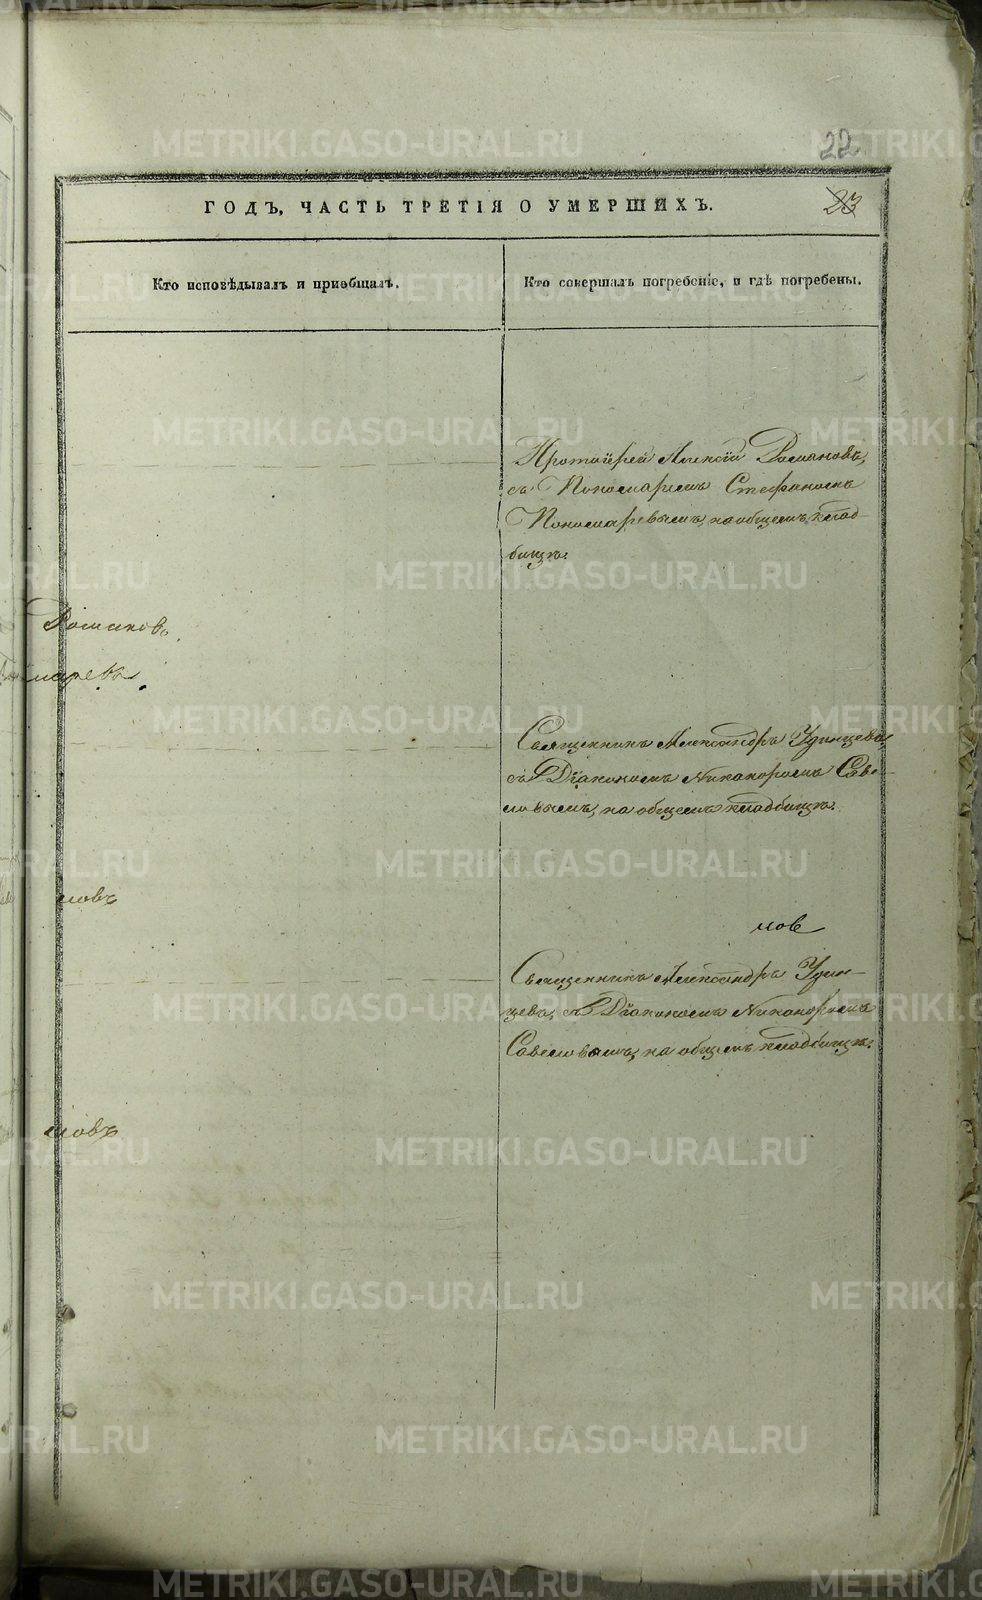 22
23
ГОДЪ, ЧАСТЬ ТРЕТІЯ О УМЕРШИХЪ.
Кто исповѣдывалъ и пріобщалъ.
Кто совершалъ погребеніе, и гдѣ погребены.
Протоіерей Алексій Романовъ,
съ Пономаремъ Стефаномъ
Пономаревымъ, на общемъ клад-
бищѣ.
Романовъ,
маревъ
Священникъ Александръ Удинцевъ,
съ Діакономъ Никаноромъ Саве-
ловымъ, на общемъ кладбищѣ.
ловъ
лов
Священникъ Александръ Удин-
цевъ, съ Діакономъ Никаноромъ
Савеловымъ, на общемъ кладбищѣ.
ловъ
METRIKI.GASO-URAL.RU